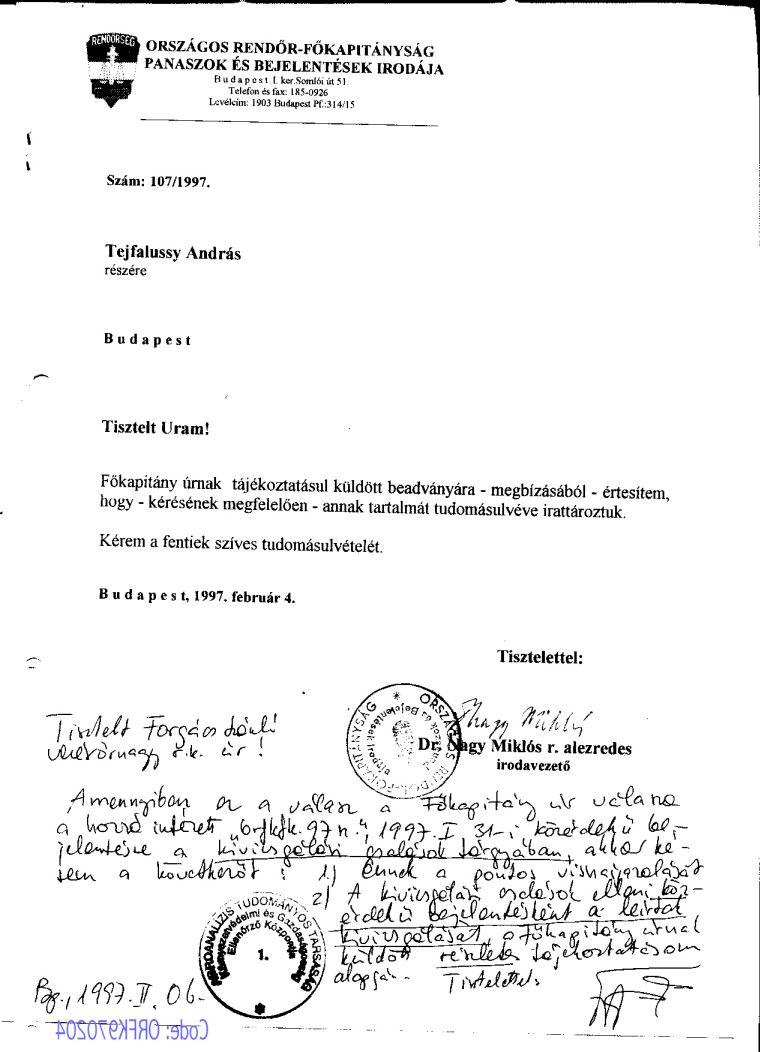 RENDŐRSÉG
ORSZÁGOS RENDŐR-FŐKAPITÁNYSÁG
PANASZOK ÉS BEJELENTÉSEK IRODÁJA
Budapest I. ker. Somlói út 51.
Telefon és fax: 185-0926
Levélcím: 1903 Budapest Pf.:314/15
Szám: 107/1997.
Tejfalussy András
részére
Budapest
Tisztelt Uram!
Főkapitány úrnak tájékoztatásul küldött beadványára - megbízásából - értesítem,
hogy - kérésének megfelelően - annak tartalmát tudomásulvéve irattároztuk.
Kérem a fentiek szíves tudomásulvételét.
Budapest, 1997. február 4.
Tisztelettel:
Nagy Miklós
Dr. Nagy Miklós r. alezredes
irodavezető
Tisztelt Forgács László
úr!
Amennyiben ez a válasz a Főkapitány úr válasza
a hozzá intézett „orfkfk.97n.", 1997. I. 31-i közérdekű be-
jelentésre a kivizsgálási csalások tárgyában, akkor ké-
rem a következőt: 1) Ennek a pontos visszaigazolását
2) A kivizsgálási csalások elleni köz-
érdekű bejelentésként a leírtak
kivizsgálását, a főkapitány úrnak
küldött részletes tájékoztatásom
alapján. Tisztelettel:
AGROANALÍZIS TUDOMÁNYOS TÁRSASÁG
Környezetvédelmi és Gazdaságossági
Ellenőrző Központja
1.
Bp., 1997. II. 06.
Code: ORFK970204